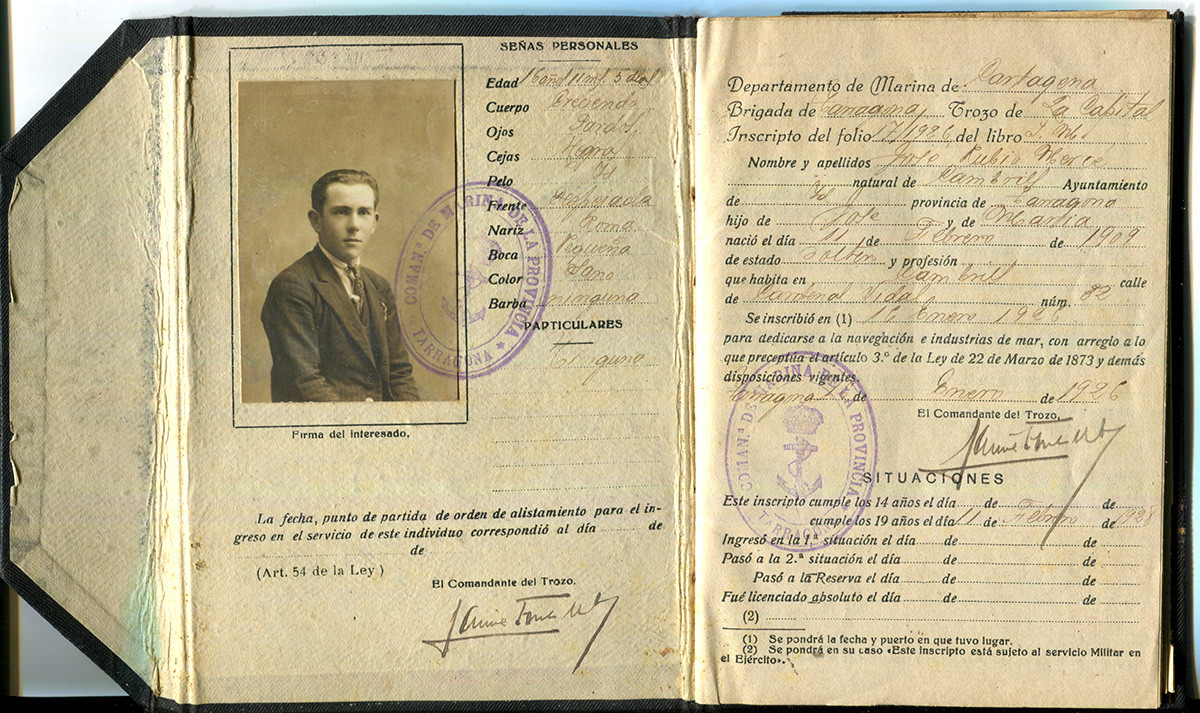 SEÑAS PERSONALES
Edad 16 años 11 ms. 5 dias
Cuerpo Creciendo
Ojos Pardos
Cejas Negras
Pelo Id
Frente Despejada
Nariz Roma
Boca Pequeña
Color Sano
Barba ninguna
PARTICULARES
Ninguna
COMAN.ª DE MARINA DE LA PROVINCIA
TARRAGONA
Firma del interesado.
La fecha, punto de partida de orden de alistamiento para el in-
greso en el servicio de este individuo correspondió al día de
de
(Art. 54 de la Ley)
El Comandante del Trozo.
Departamento de Marina de: Cartagena
Brigada de Tarragona Trozo de La Capital
Inscripto del folio 17/1926 del libro
Nombre y apellidos José Rubio Mercé
natural de Cambrils Ayuntamiento
de Id provincia de Tarragona
hijo de José y de María
nació el día 11 de Febrero de 1909
de estado Soltero y profesión
que habita en Cambrils calle
de Cardenal Vidal núm. 82
Se inscribió en (1) 16 Enero 1926
para dedicarse a la navegación e industrias de mar, con arreglo a lo
que preceptúa el artículo 3.º de la Ley de 22 de Marzo de 1873 y demás
disposiciones vigentes.
Tarragona de Enero de 1926
El Comandante del Trozo,
COMAN.ª DE MARINA DE LA PROVINCIA
TARRAGONA
SITUACIONES
Este inscripto cumple los 14 años el día de de
cumple los 19 años el día 11 de Febrero de 1928
Ingresó en la 1.ª situación el día de de
Pasó a la 2.ª situación el día de de
Pasó a la Reserva el día de de
Fué licenciado absoluto el día de de
(2)
(1) Se pondrá la fecha y puerto en que tuvo lugar.
(2) Se pondrá en su caso «Este inscripto está sujeto al servicio Militar en
el Ejército».